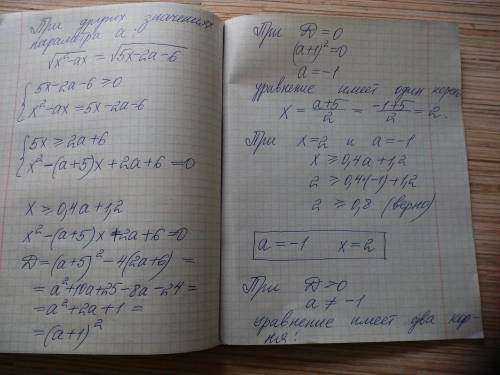 При других значениях
параметра a:
√x²-ax = √5x-2a-6
{ 5x-2a-6 ≥ 0
x²-ax = 5x-2a-6
{ 5x ≥ 2a+6
x²-(a+5)x+2a+6 = 0
x ≥ 0,4a+1,2
x²-(a+5)x+2a+6 = 0
D = (a+5)²-4(2a+6) =
= a²+10a+25-8a-24 =
= a²+2a+1 =
= (a+1)²
При D = 0
(a+1)² = 0
a = -1
уравнение имеет один корень
x = (a+5)/2 = (-1+5)/2 = 2.
При x = 2 и a = -1
x ≥ 0,4a+1,2
2 ≥ 0,4·(-1)+1,2
2 ≥ 0,8 (верно)
a = -1 x = 2
При D > 0
a ≠ -1
уравнение имеет два кор-
ня: